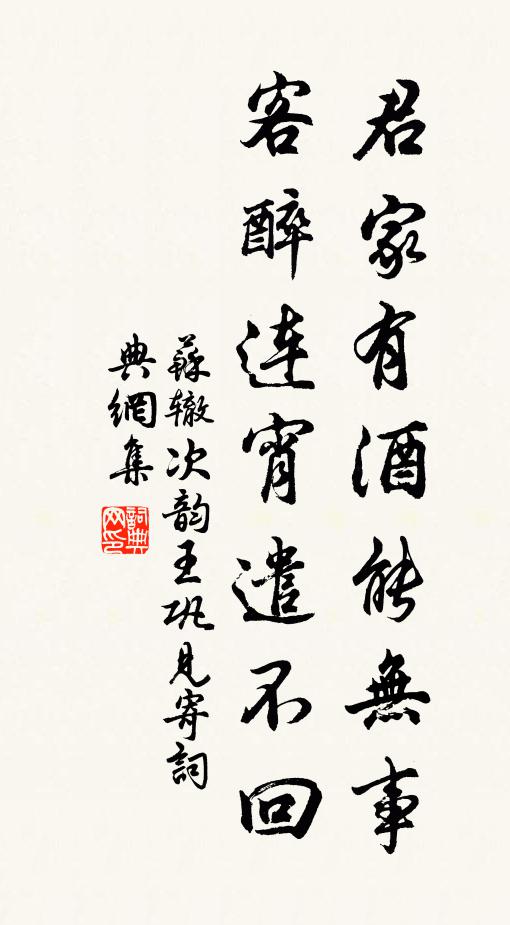 君家有酒能無事
客醉连宵遣不回
蘇辙次韵王巩見寄詞
典網集
詞典网印